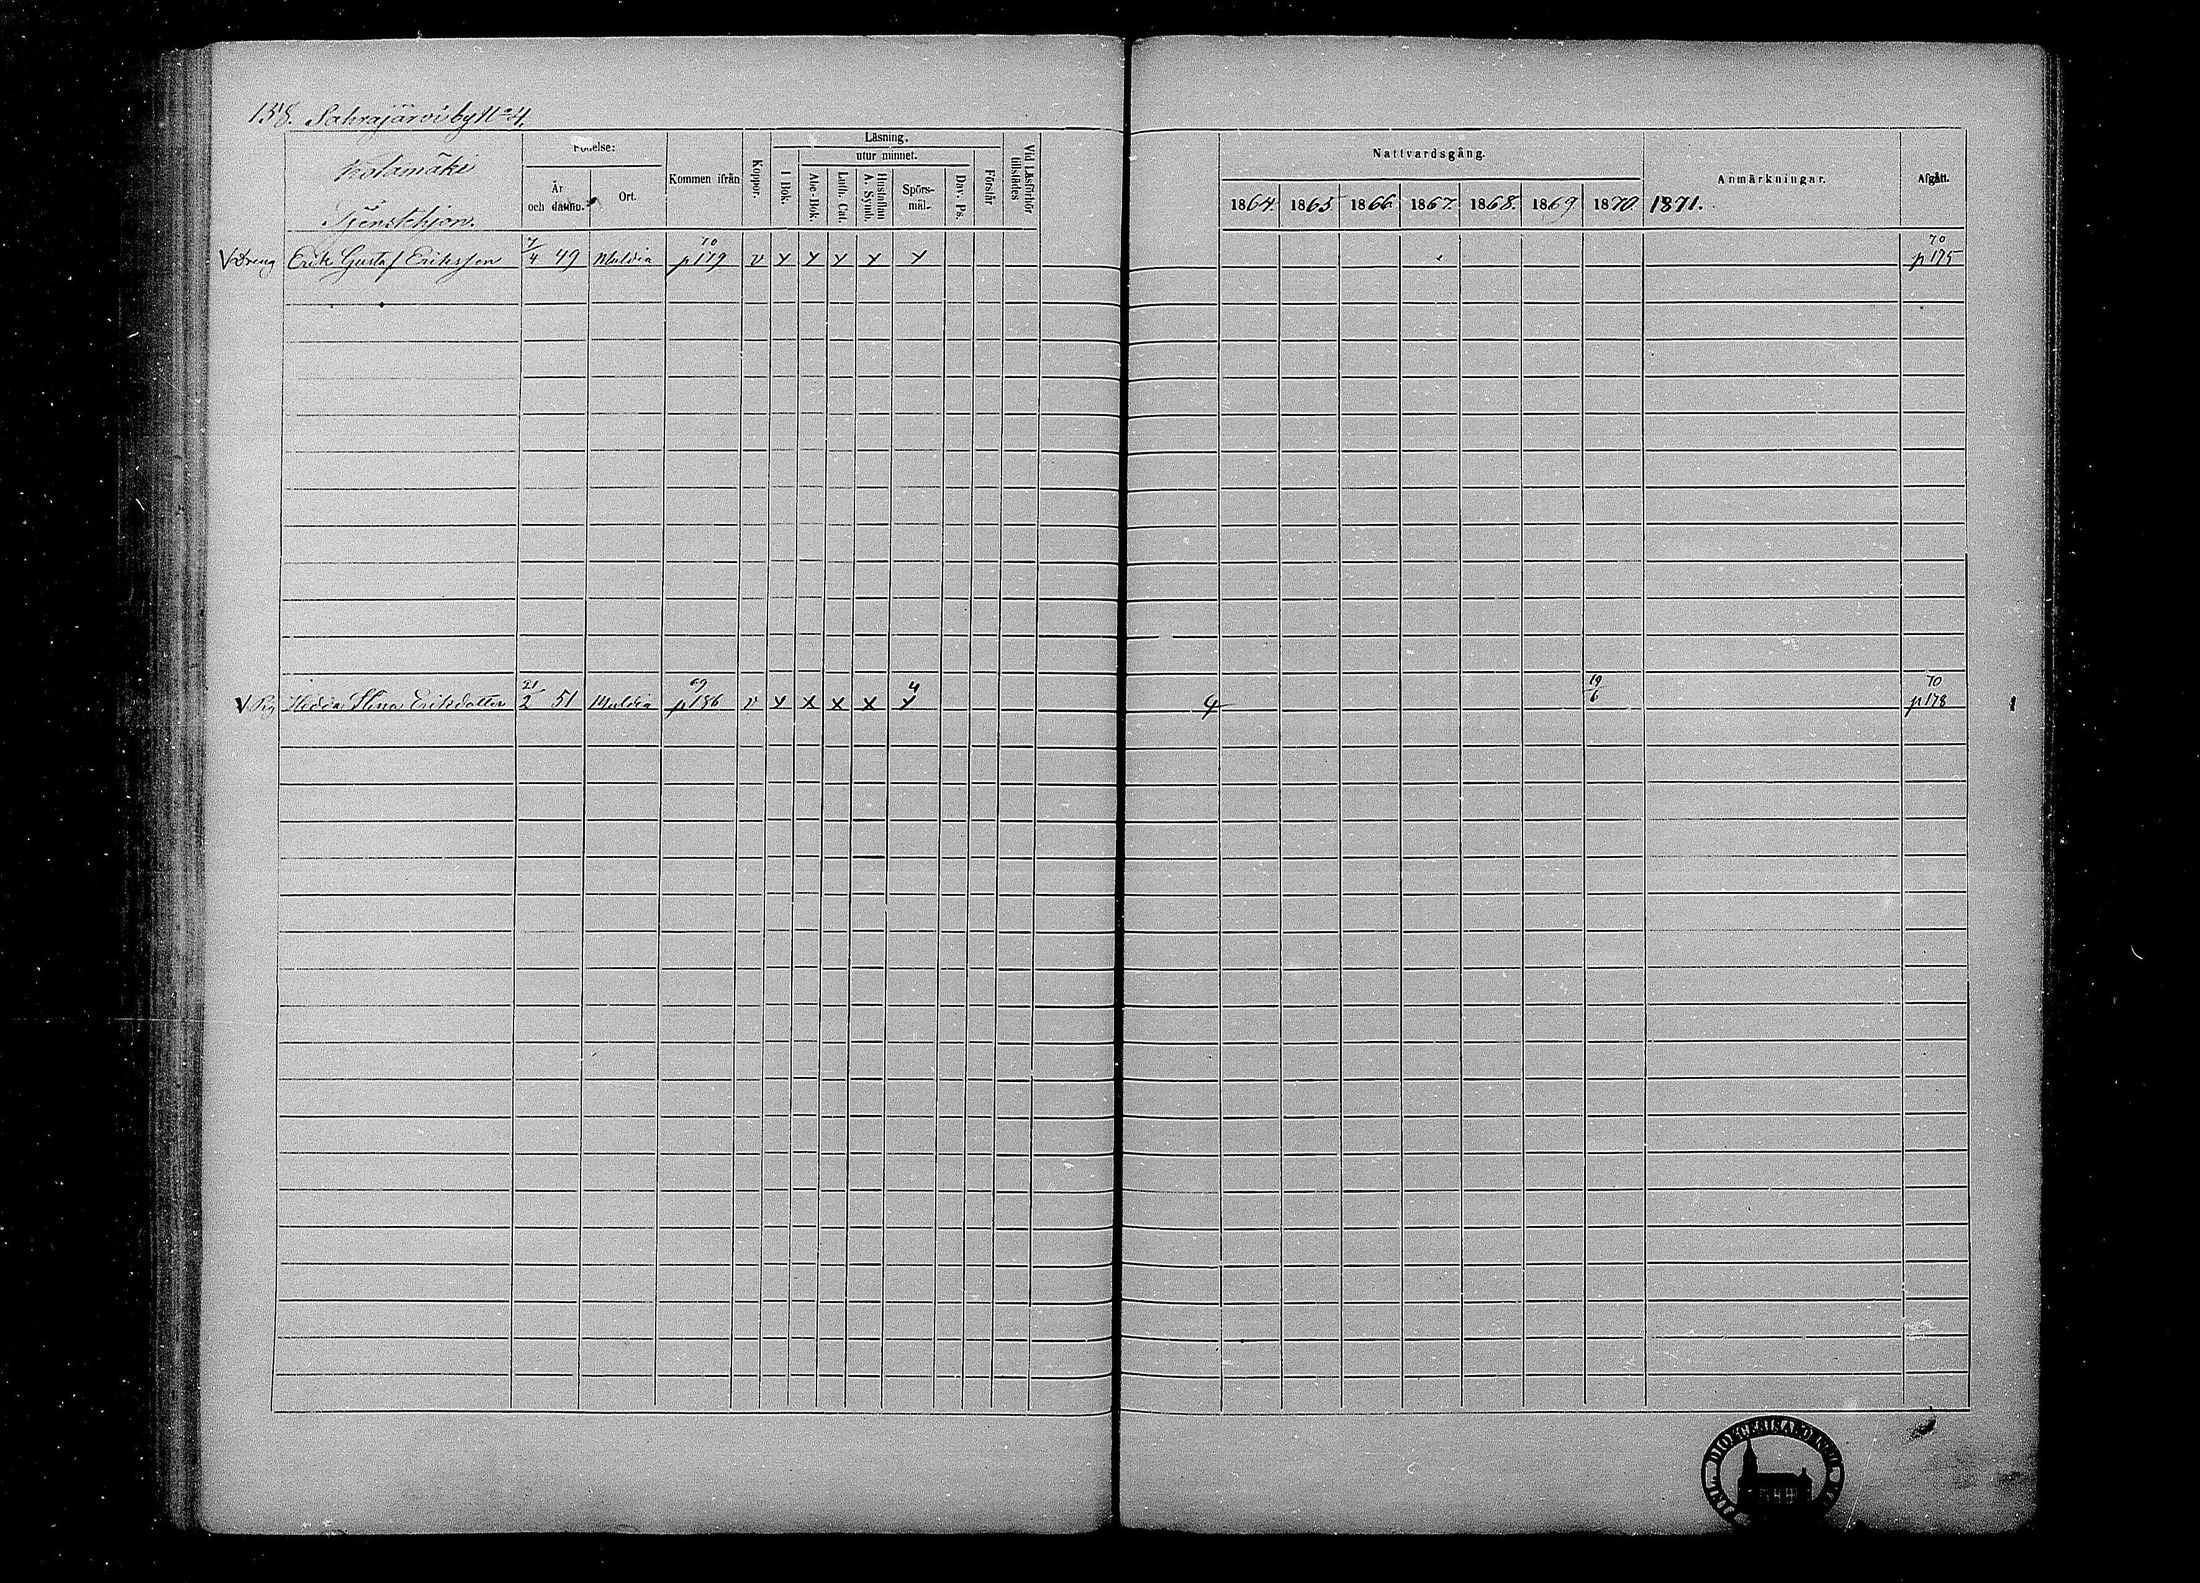 158. Sahrajärvi by No 4.
Kotamäki
Tjenstehjon.
Födelse:
År och datum.
Ort.
Kommen ifrån
Koppor.
Läsning.
utur minnet.
I Bok.
Abc-Bok.
Luth. Cat.
Hustaflan A. Symb.
Spörs-mål.
Dav. Ps.
Förstår
Vid Läsförhör tillstädes
Nattvardsgång.
1864. 1865 1866 1867. 1868. 1869 1870. 1871.
Anmärkningar.
Afgått.
V Dreng Erik Gustaf Eriksson 7/4 49 Muldia 70 p 179 v x x x x x 70 p 175
V Pig Hedda Stina Eriksdotter 21/2 51 Muldia 69 p 186 v x x x x 4 x 4 19/6 70 p 178 1